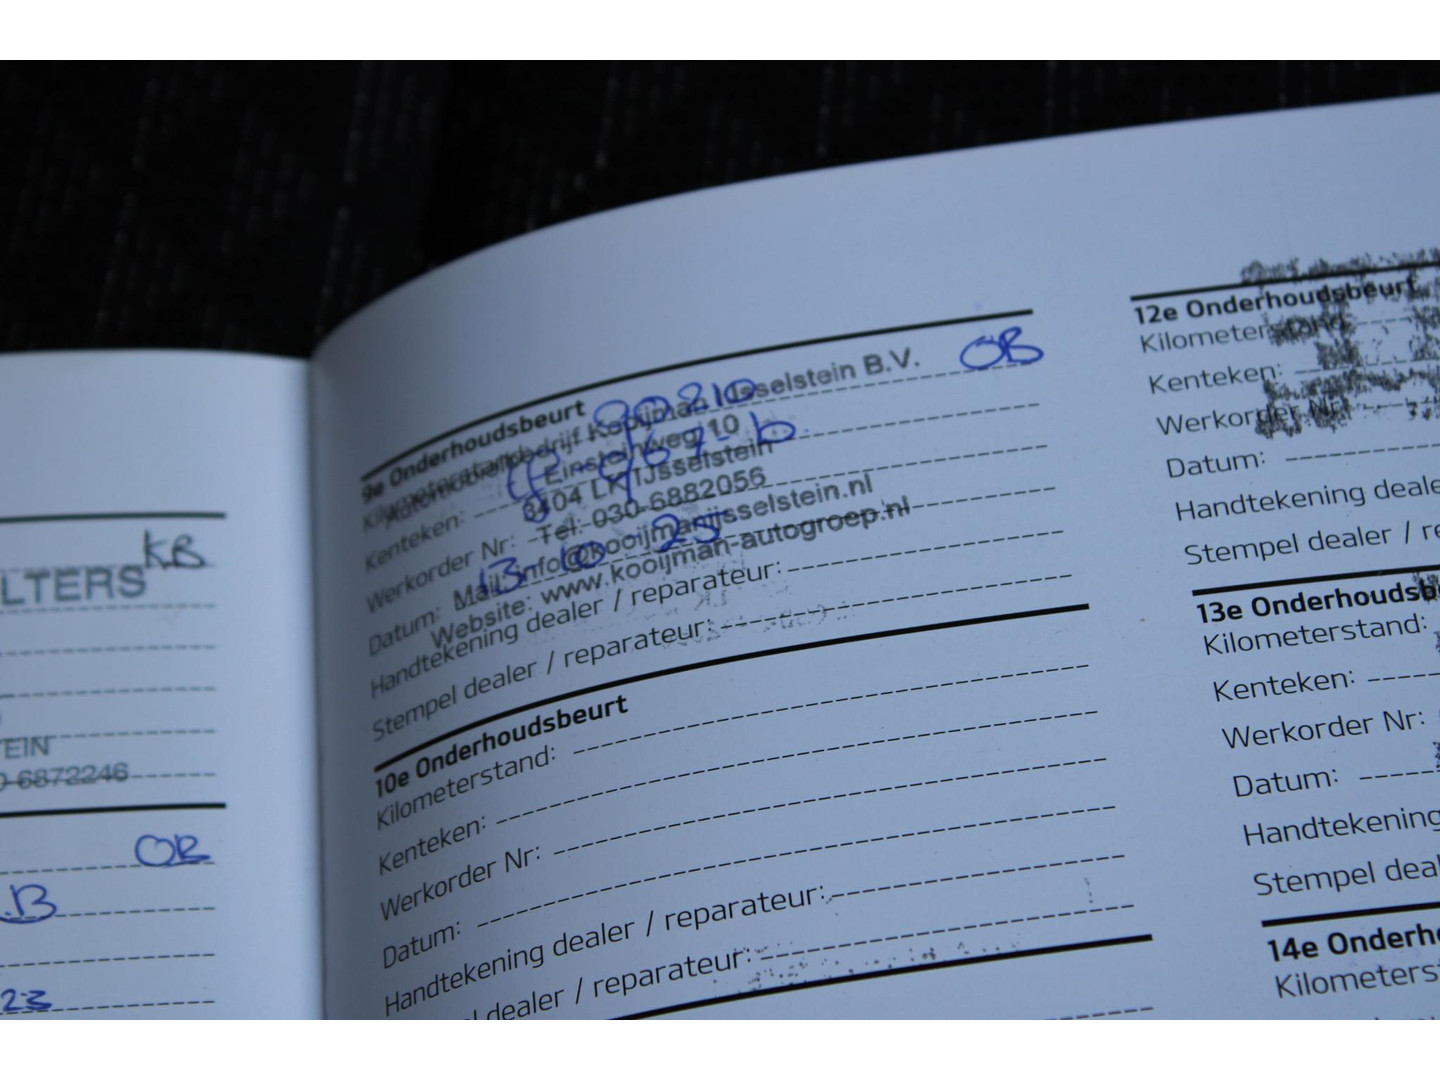 KB
LTERS
TEIN
0-6872246
OB
.B
23
9e Onderhoudsbeurt
OB
Kilometerstand: 90210
Automobielbedrijf Kooijman IJsselstein B.V.
Einsteinweg 10
Kenteken:
3404 LK IJsselstein
Werkorder Nr:
Tel: 030-6882056
Datum: 13-10-25
Mail: info@kooijmanijsselstein.nl
Website: www.kooijman-autogroep.nl
Handtekening dealer / reparateur:
Stempel dealer / reparateur:
10e Onderhoudsbeurt
Kilometerstand:
Kenteken:
Werkorder Nr:
Datum:
Handtekening dealer / reparateur:
dealer / reparateur:
12e Onderhoudsbeurt
Kilometerstand:
Kenteken:
Werkorder Nr:
Datum:
Handtekening deale
Stempel dealer / re
13e Onderhoudsb
Kilometerstand:
Kenteken:
Werkorder Nr:
Datum:
Handtekening
Stempel deal
14e Onderh
Kilometerst